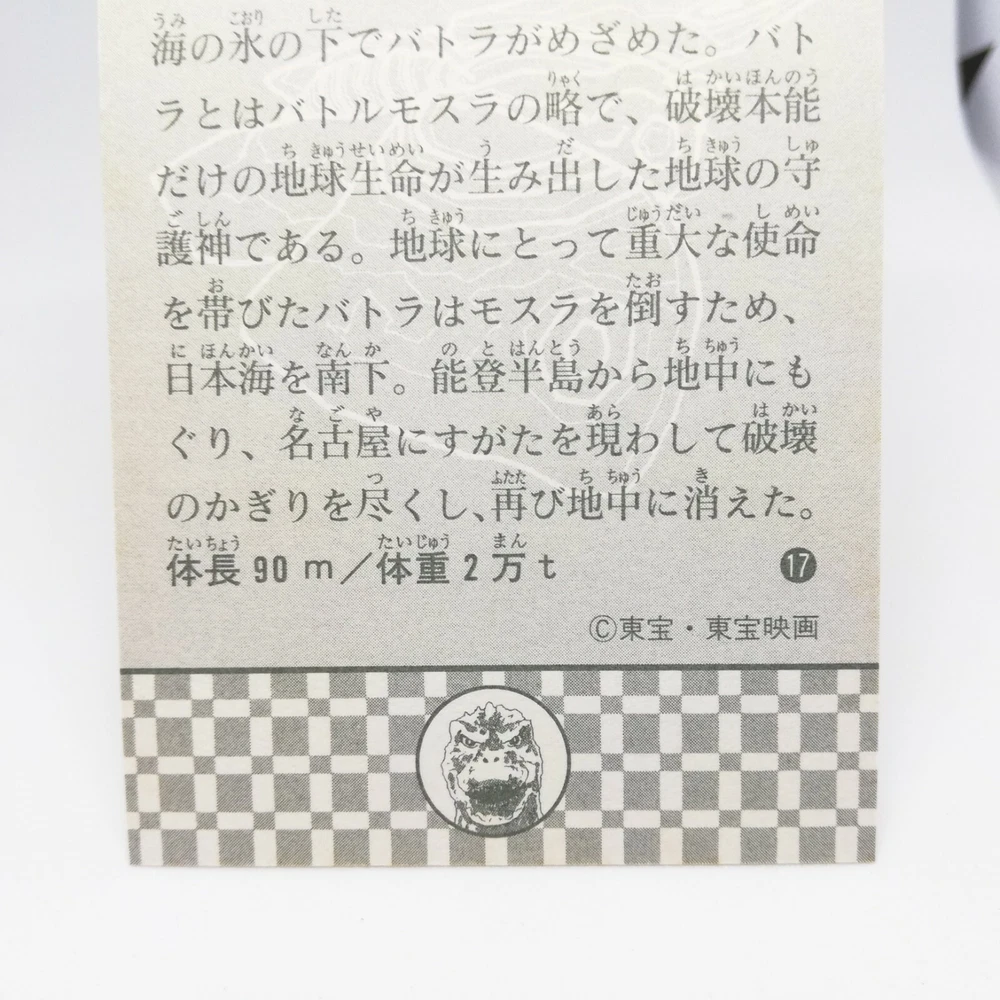 海の氷の下でバトラがめざめた。バト
ラとはバトルモスラの略で、破壊本能
だけの地球生命が生み出した地球の守
護神である。地球にとって重大な使命
を帯びたバトラはモスラを倒すため、
日本海を南下。能登半島から地中にも
ぐり、名古屋にすがたを現わして破壊
のかぎりを尽くし、再び地中に消えた。
体長90m／体重2万t
17
©東宝・東宝映画